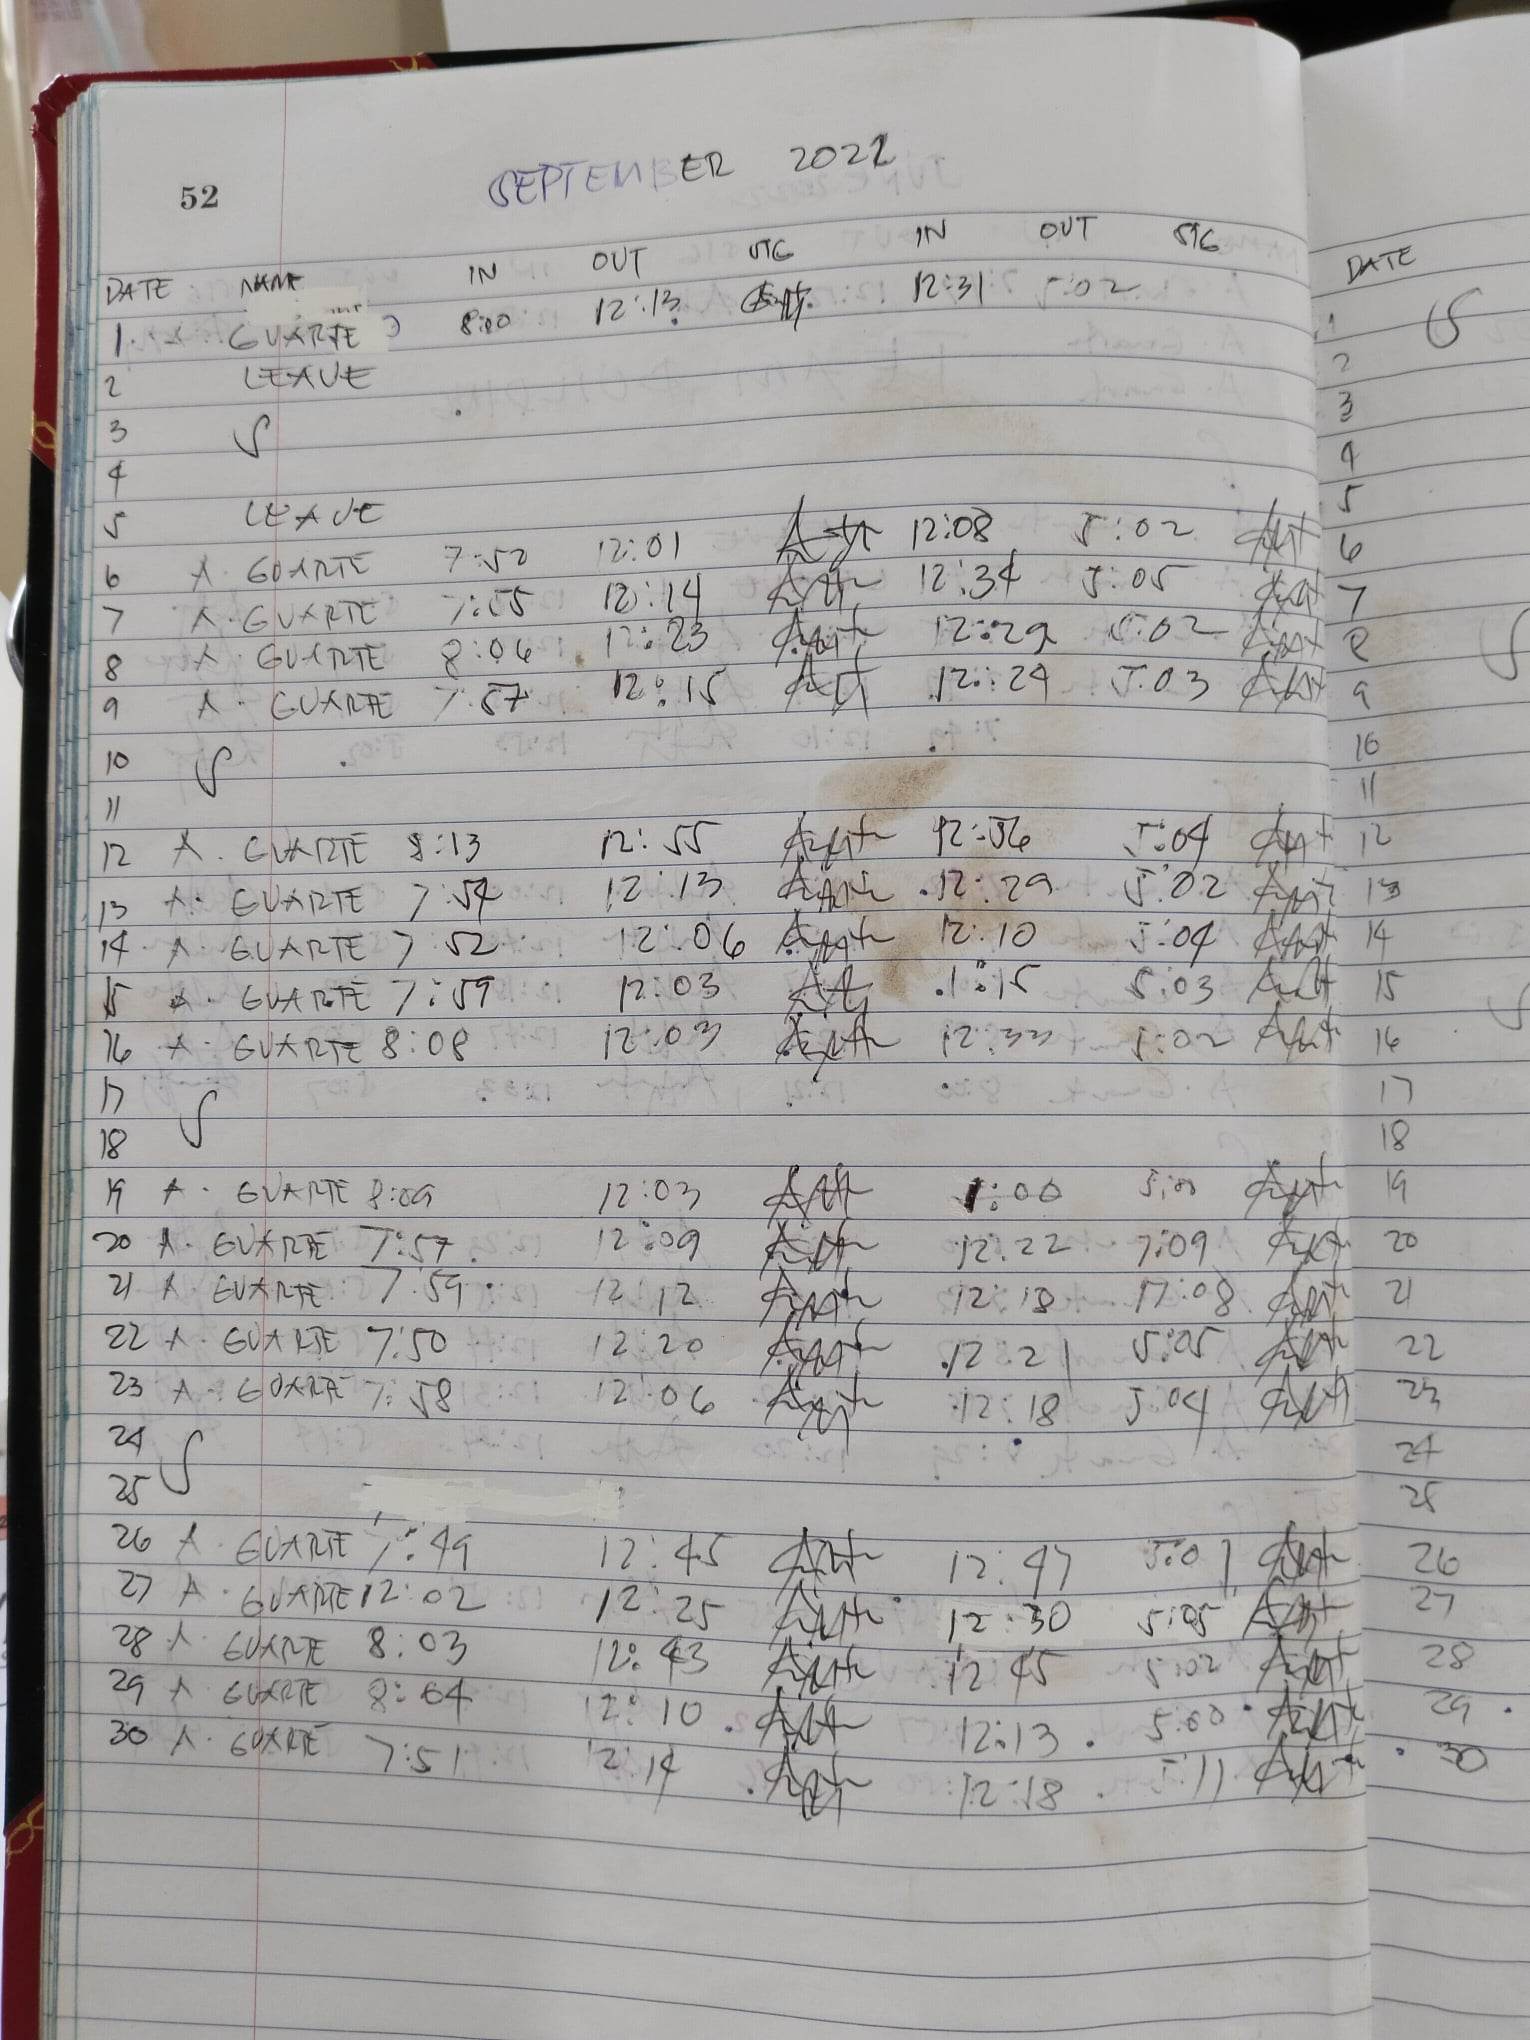 52
SEPTEMBER 2022
DATE NAME IN OUT SIG IN OUT SIG
1. A GUARTE 8:00 12:13 12:31 5:02
2 LEAVE
3 S
4
5 LEAVE
6 A. GUARTE 7:52 12:01 12:08 5:02
7 A. GUARTE 7:55 12:14 12:34 5:05
8 A. GUARTE 8:06 12:23 12:29 5:02
9 A. GUARTE 7:57 12:15 12:24 5:03
10 S
11
12 A. GUARTE 8:13 12:55 12:56 5:04
13 A. GUARTE 7:54 12:13 12:29 5:02
14 A. GUARTE 7:52 12:06 12:10 5:04
15 A. GUARTE 7:59 12:03 1:15 5:03
16 A. GUARTE 8:08 12:03 12:33 5:02
17 S
18
19 A. GUARTE 8:09 12:03 1:00 5:00
20 A. GUARTE 7:57 12:09 12:22 7:09
21 A. GUARTE 7:59 12:12 12:18 17:08
22 A. GUARTE 7:50 12:20 12:21 5:05
23 A. GUARTE 7:58 12:06 12:18 5:04
24 S
25
26 A. GUARTE 7:49 12:45 12:47 5:01
27 A. GUARTE 12:02 12:25 12:30 5:05
28 A. GUARTE 8:03 12:43 12:45 5:02
29 A GUARTE 8:04 12:10 12:13 5:00
30 A. GUARTE 7:51 12:14 12:18 5:11
DATE
1 S
2
3
4
5
6
7
8
9
10
11
12
13
14
15
16
17
18
19
20
21
22
23
24
25
26
27
28
29
30